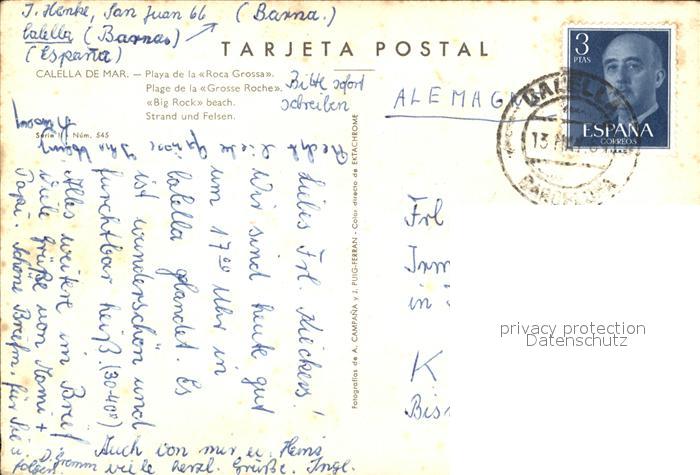 J. Henke, San Juan 66 (Barna.)
Calella (Barna.)
(España)
TARJETA POSTAL
CALELLA DE MAR. — Playa de la «Roca Grossa».
Plage de la «Grosse Roche».
«Big Rock» beach.
Strand und Felsen.
Serie II - Núm. 545
Bitte sofort
schreiben
ALEMAG
3
PTAS
ESPAÑA
CORREOS
CALELLA
BARCELONA
Fotografías de A. CAMPAÑA y J. PUIG-FERRAN - Color directo de EKTACHROME
Liebes Frl. Kückers!
Wir sind heute gut
um 17⁰⁰ Uhr in
Calella gelandet. Es
ist wunderschön und
furchtbar heiß. (30-40°)
Alles weitere im Brief
viele Grüße von Mami +
Papi. Schöne Briefm. für Sie
folgen.
Recht liebe Grüße Ihre
Auch von mir u. Heins
viele herzl. Grüße. Ingl.
Frl
in
K
Bis
privacy protection
Datenschutz